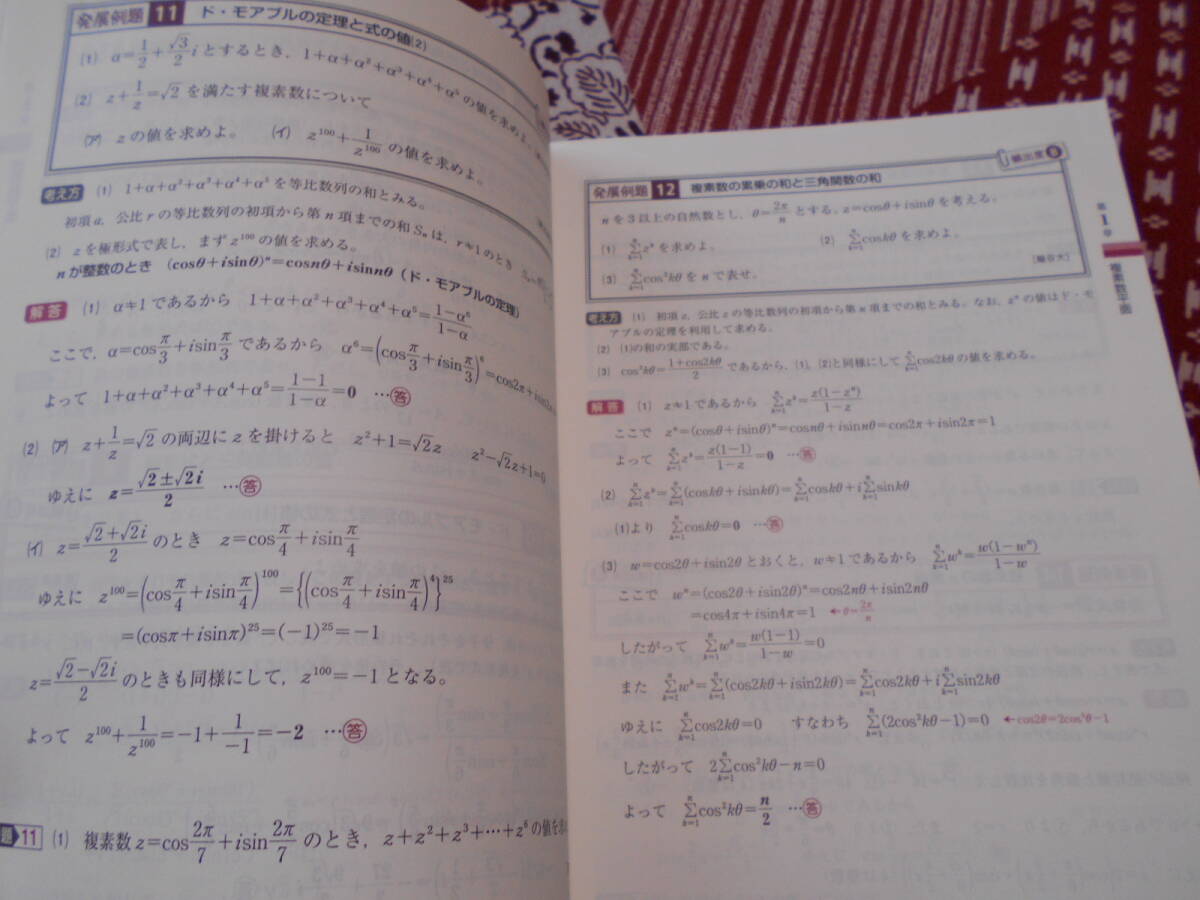 発展例題 11 ド・モアブルの定理と式の値(2)
(1) α=1/2+√3/2 i とするとき，1+α+α²+α³+α⁴+α⁵ の値を求めよ。
(2) z+1/z=√2 を満たす複素数について
(ア) z の値を求めよ。 (イ) z¹⁰⁰+1/z¹⁰⁰ の値を求めよ。
考え方 (1) 1+α+α²+α³+α⁴+α⁵ を等比数列の和とみる。
初項 a，公比 r の等比数列の初項から第 n 項までの和 Sₙ は，r≠1 のとき
(2) z を極形式で表し，まず z¹⁰⁰ の値を求める。
n が整数のとき (cosθ+isinθ)ⁿ=cosnθ+isinnθ (ド・モアブルの定理)
解答 (1) α≠1 であるから 1+α+α²+α³+α⁴+α⁵=(1-α⁶)/(1-α)
ここで，α=cos π/3+isin π/3 であるから α⁶=(cos π/3+isin π/3)⁶=cos2π+isin2π
よって 1+α+α²+α³+α⁴+α⁵=(1-1)/(1-α)=0 …答
(2) (ア) z+1/z=√2 の両辺に z を掛けると z²+1=√2z z²-√2z+1=0
ゆえに z=(√2±√2i)/2 …答
(イ) z=(√2+√2i)/2 のとき z=cos π/4+isin π/4
ゆえに z¹⁰⁰=(cos π/4+isin π/4)¹⁰⁰={(cos π/4+isin π/4)⁴}²⁵
=(cosπ+isinπ)²⁵=(-1)²⁵=-1
z=(√2-√2i)/2 のときも同様にして，z¹⁰⁰=-1 となる。
よって z¹⁰⁰+1/z¹⁰⁰=-1+1/-1=-2 …答
題 11 (1) 複素数 z=cos 2π/7+isin 2π/7 のとき，z+z²+z³+…+z⁶ の値を求
頻出度 B
発展例題 12 複素数の累乗の和と三角関数の和
n を3以上の自然数とし，θ=2π/n とする。z=cosθ+isinθ を考える。
(1) Σ[k=1,n] zᵏ を求めよ。 (2) Σ[k=1,n] coskθ を求めよ。
(3) Σ[k=1,n] cos²kθ を n で表せ。
考え方 (1) 初項 z，公比 z の等比数列の初項から第 n 項までの和とみる。なお，zⁿ の値はド・モ
アブルの定理を利用して求める。
(2) (1)の和の実部である。
(3) cos²kθ=(1+cos2kθ)/2 であるから，(1)，(2)と同様にして Σ[k=1,n] cos2kθ の値を求める。
解答 (1) z≠1 であるから Σ[k=1,n] zᵏ=z(1-zⁿ)/(1-z)
ここで zⁿ=(cosθ+isinθ)ⁿ=cosnθ+isinnθ=cos2π+isin2π=1
よって Σ[k=1,n] zᵏ=z(1-1)/(1-z)=0 …答
(2) Σ[k=1,n] zᵏ=Σ[k=1,n](coskθ+isinkθ)=Σ[k=1,n] coskθ+iΣ[k=1,n] sinkθ
(1)より Σ[k=1,n] coskθ=0 …答
(3) w=cos2θ+isin2θ とおくと，w≠1 であるから Σ[k=1,n] wᵏ=w(1-wⁿ)/(1-w)
ここで wⁿ=(cos2θ+isin2θ)ⁿ=cos2nθ+isin2nθ
=cos4π+isin4π=1 ←θ=2π/n
したがって Σ[k=1,n] wᵏ=w(1-1)/(1-w)=0
また Σ[k=1,n] wᵏ=Σ[k=1,n](cos2kθ+isin2kθ)=Σ[k=1,n] cos2kθ+iΣ[k=1,n] sin2kθ
ゆえに Σ[k=1,n] cos2kθ=0 すなわち Σ[k=1,n](2cos²kθ-1)=0 ←cos2θ=2cos²θ-1
したがって 2Σ[k=1,n] cos²kθ-n=0
よって Σ[k=1,n] cos²kθ=n/2 …答
第1章
複素数平面